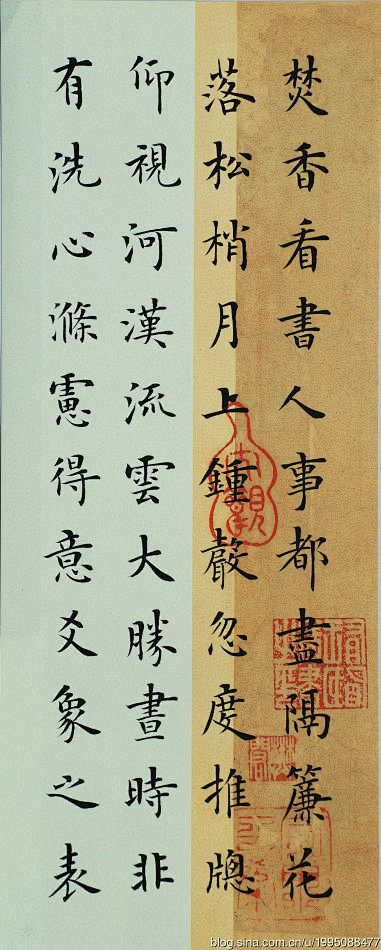 焚香看書人事都盡隔簾花
落松梢月上鍾聲忽度推牕
仰視河漢流雲大勝晝時非
有洗心滌慮得意爻象之表
blog.sina.com.cn/u/1995088477